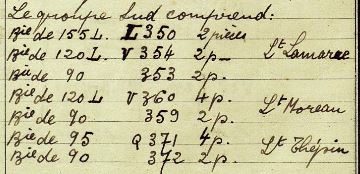 Le groupe Sud comprend:
Bie de 155 L. L 350 2 pièces
Bie de 120 L V 354 2 p. Lt Lamarre
Bie de 90 353 2 p.
Bie de 120 L V 360 4 p. Lt Moreau
Bie de 90 359 2 p.
Bie de 95 Q 371 4 p. Lt Thépin
Bie de 90 372 2 p.